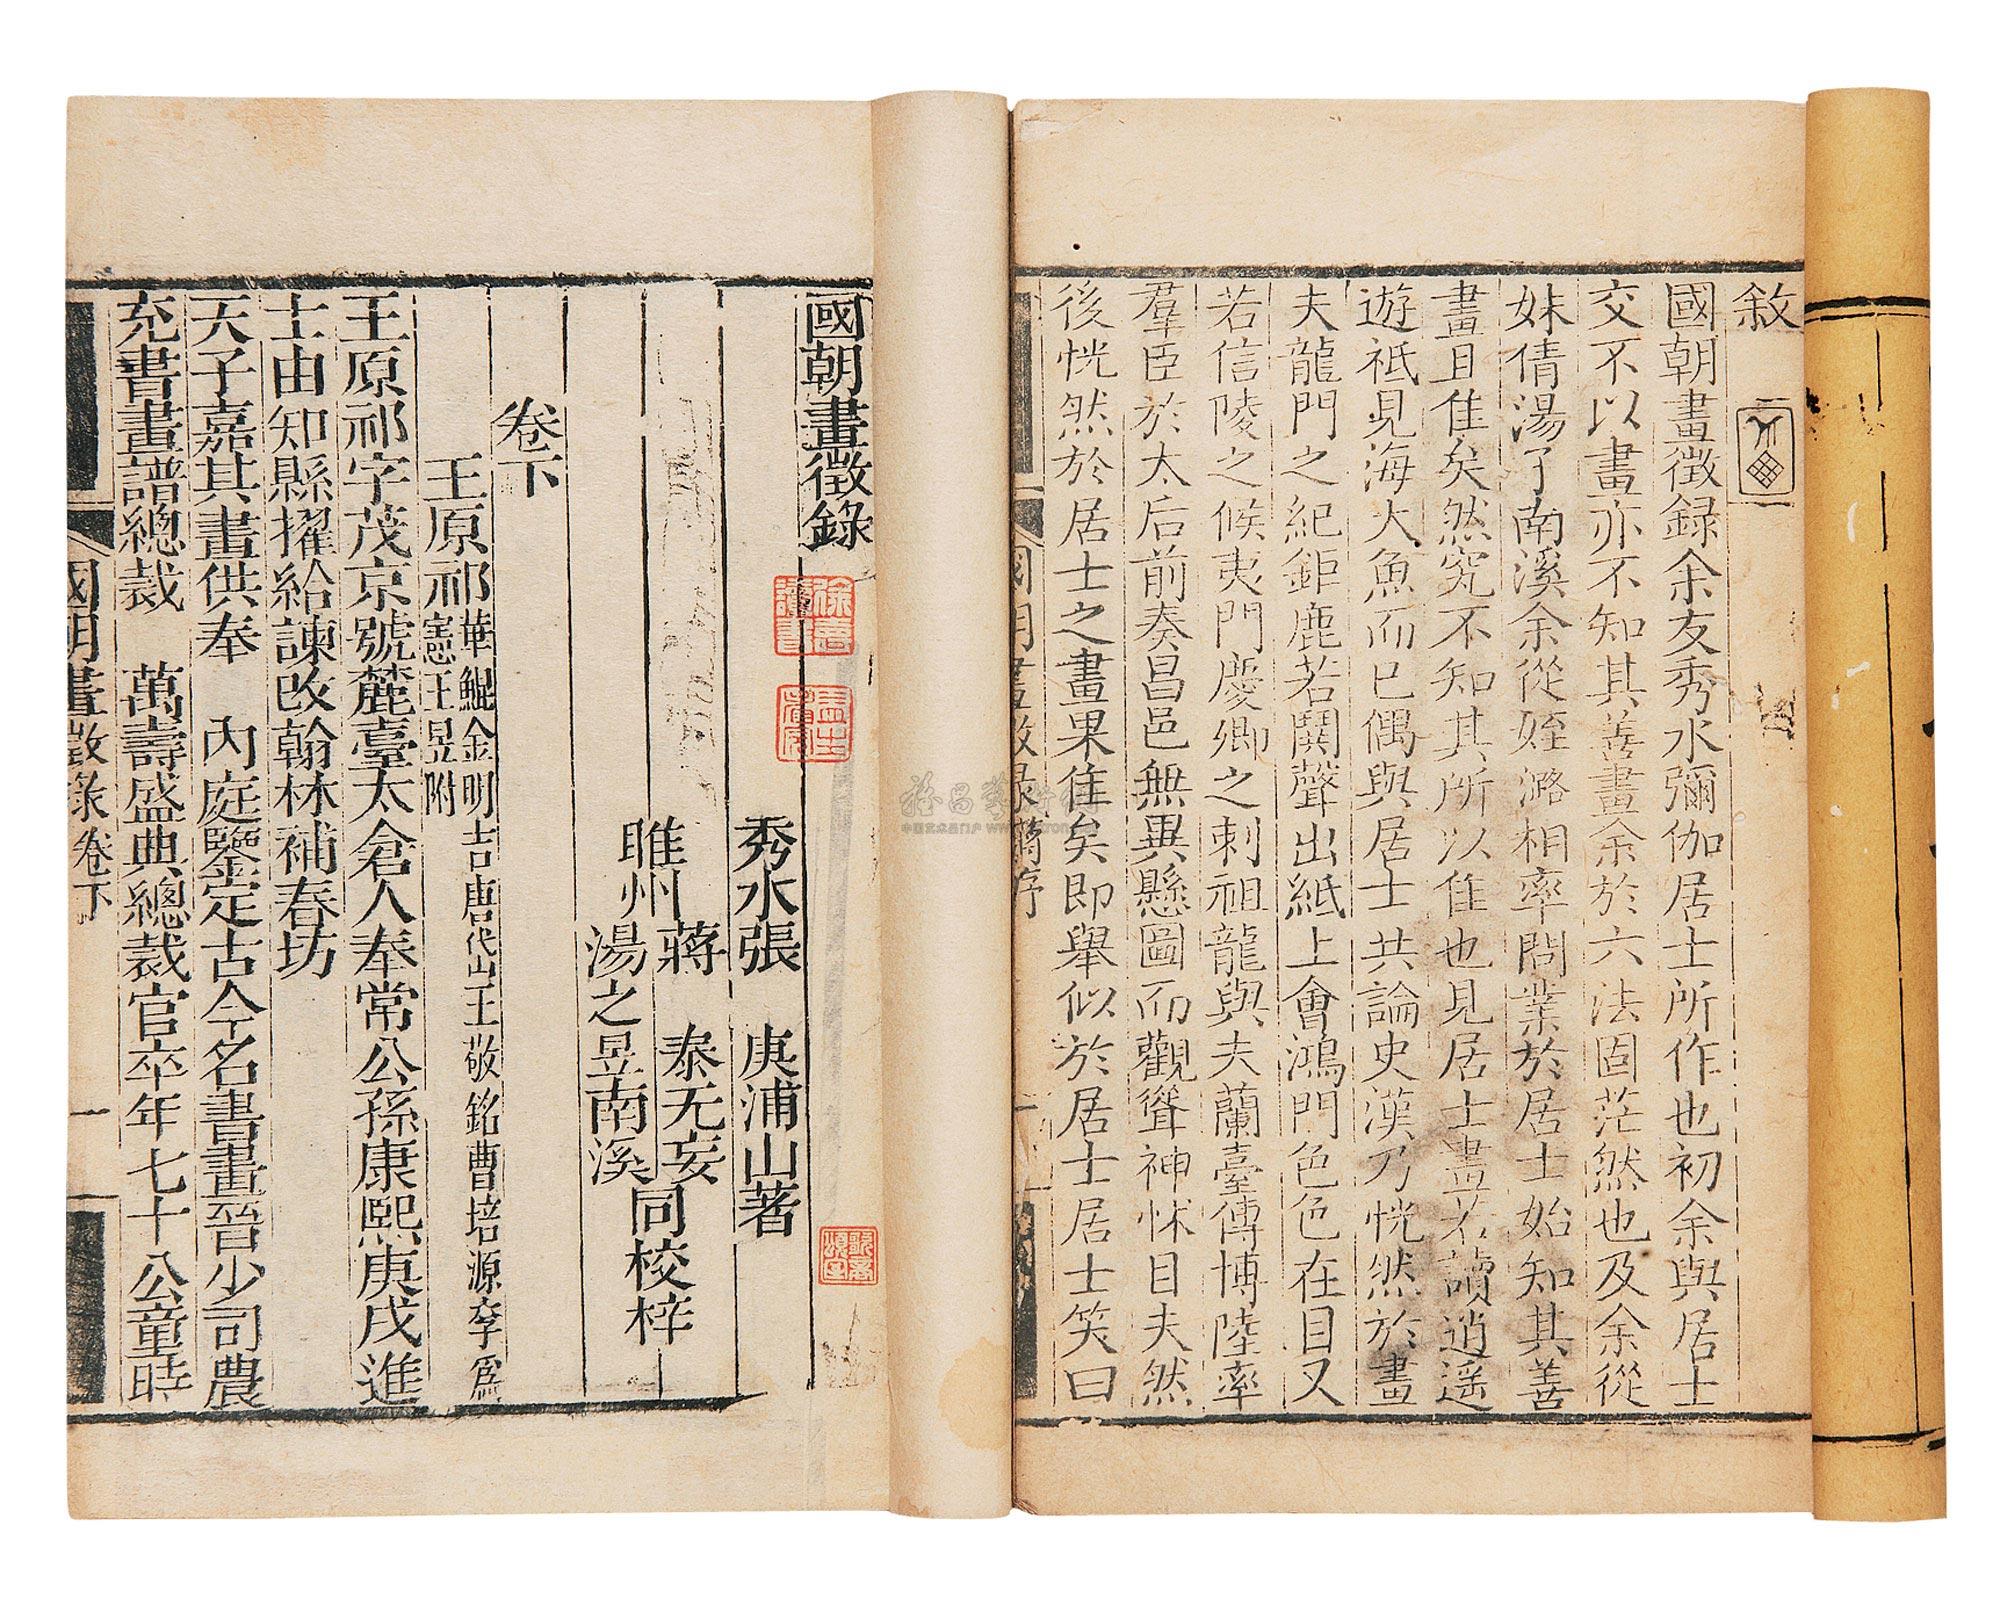 敘
國朝畫徵録余友秀水彌伽居士所作也初余與居士
交不以畫亦不知其善畫余於六法固茫然也及余從
妹倩湯子南溪余從姪潞相率問業於居士始知其善
畫且佳矣然究不知其所以佳也見居士畫若讀逍遥
遊祗見海大魚而已偶與居士共論史漢乃恍然於畫
夫龍門之紀鉅鹿若鬭聲出紙上會鴻門色色在目又
若信陵之候夷門慶卿之刺祖龍與夫蘭臺傳博陸率
羣臣於太后前奏昌邑無異懸圖而觀聳神怵目夫然
後恍然於居士之畫果佳矣即舉似於居士居士笑曰
國朝畫徵録 蔣序
國朝畫徵錄
秀水張 庚浦山著
蔣 泰无妄
睢州 同校梓
湯之昱南溪
卷下
王原祁 華鯤金明吉唐岱山王敬銘曹培源李爲
憲王昱附
王原祁字茂京號麓臺太倉人奉常公孫康熙庚戌進
士由知縣擢給諫改翰林補春坊
天子嘉其畫供奉 內庭鑒定古今名書畫晉少司農
充書畫譜總裁 萬壽盛典總裁官卒年七十公童時
國朝畫徵录 卷下 一